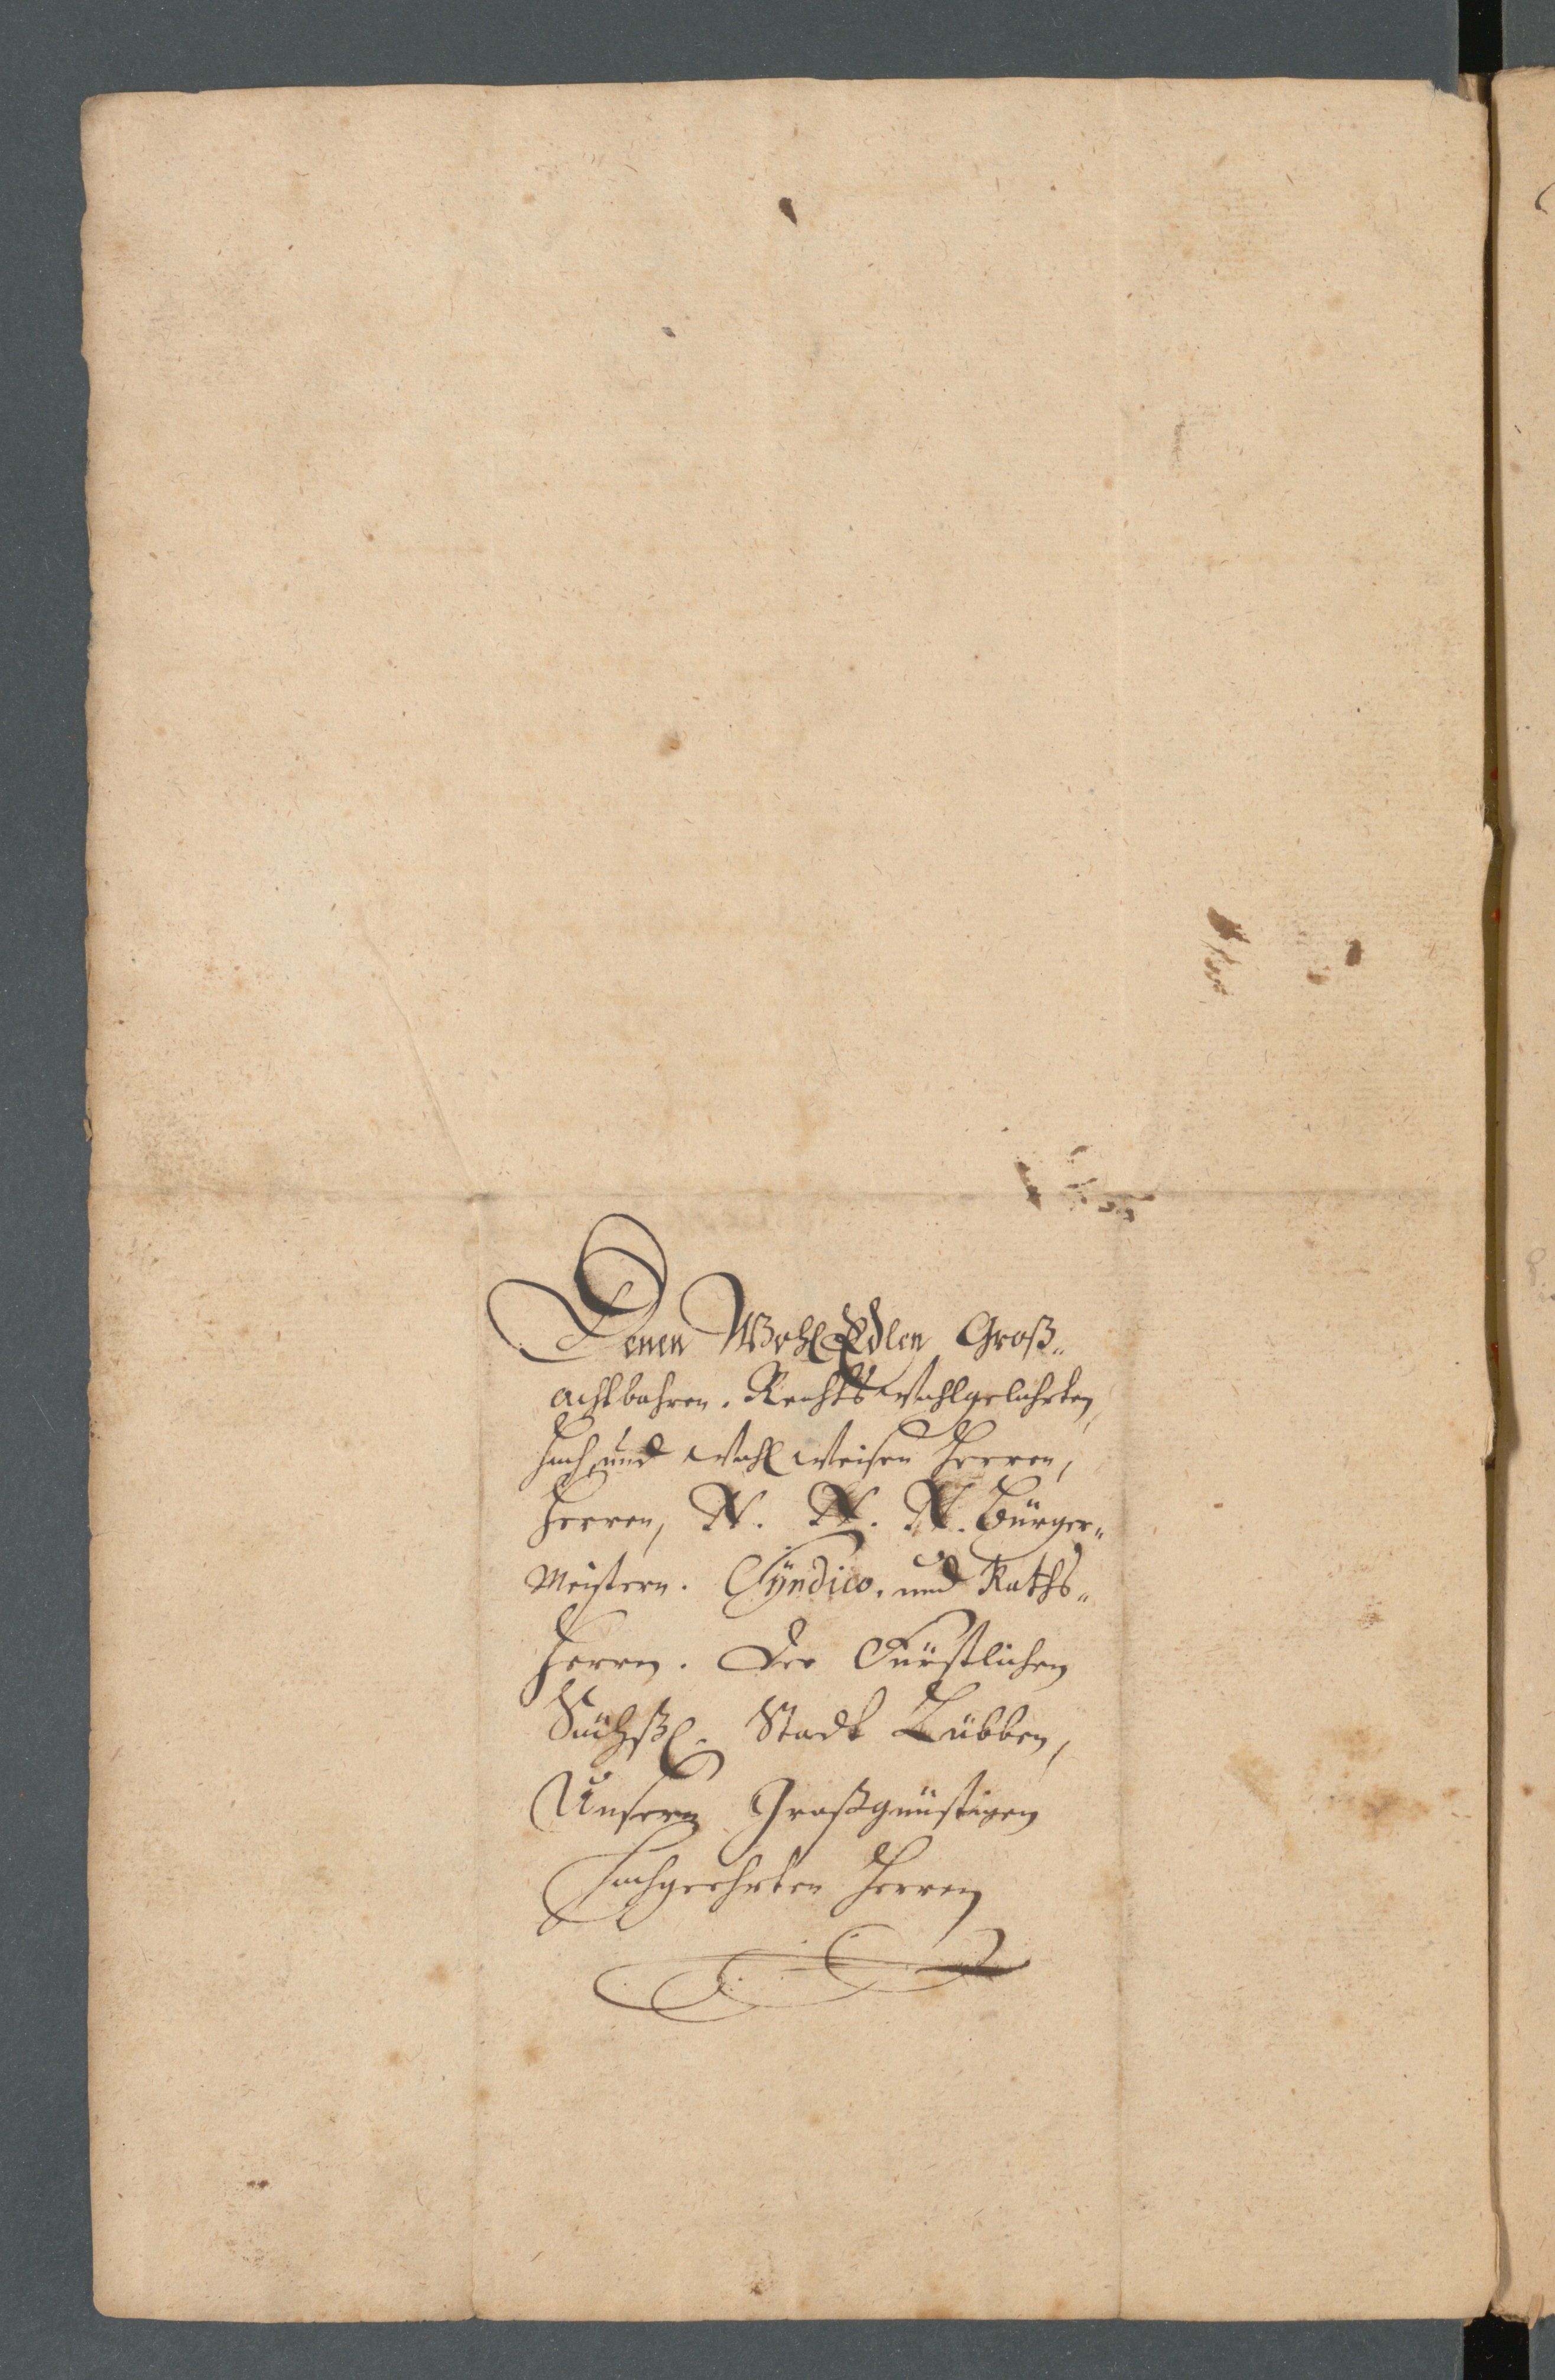 Denen WohlEdlen Groß„
achtbahren. Rechts Wohlgelahrten,
Hoch und Wohl Weisen Herren,
Herren, N. N. N. Bürger„
Meistern. Syndico. und Raths„
Herren. Der Fürstlichen
Sächßl. Stadt Lübben,
Unsern Großgünstigen
Hochgeehrten Herren